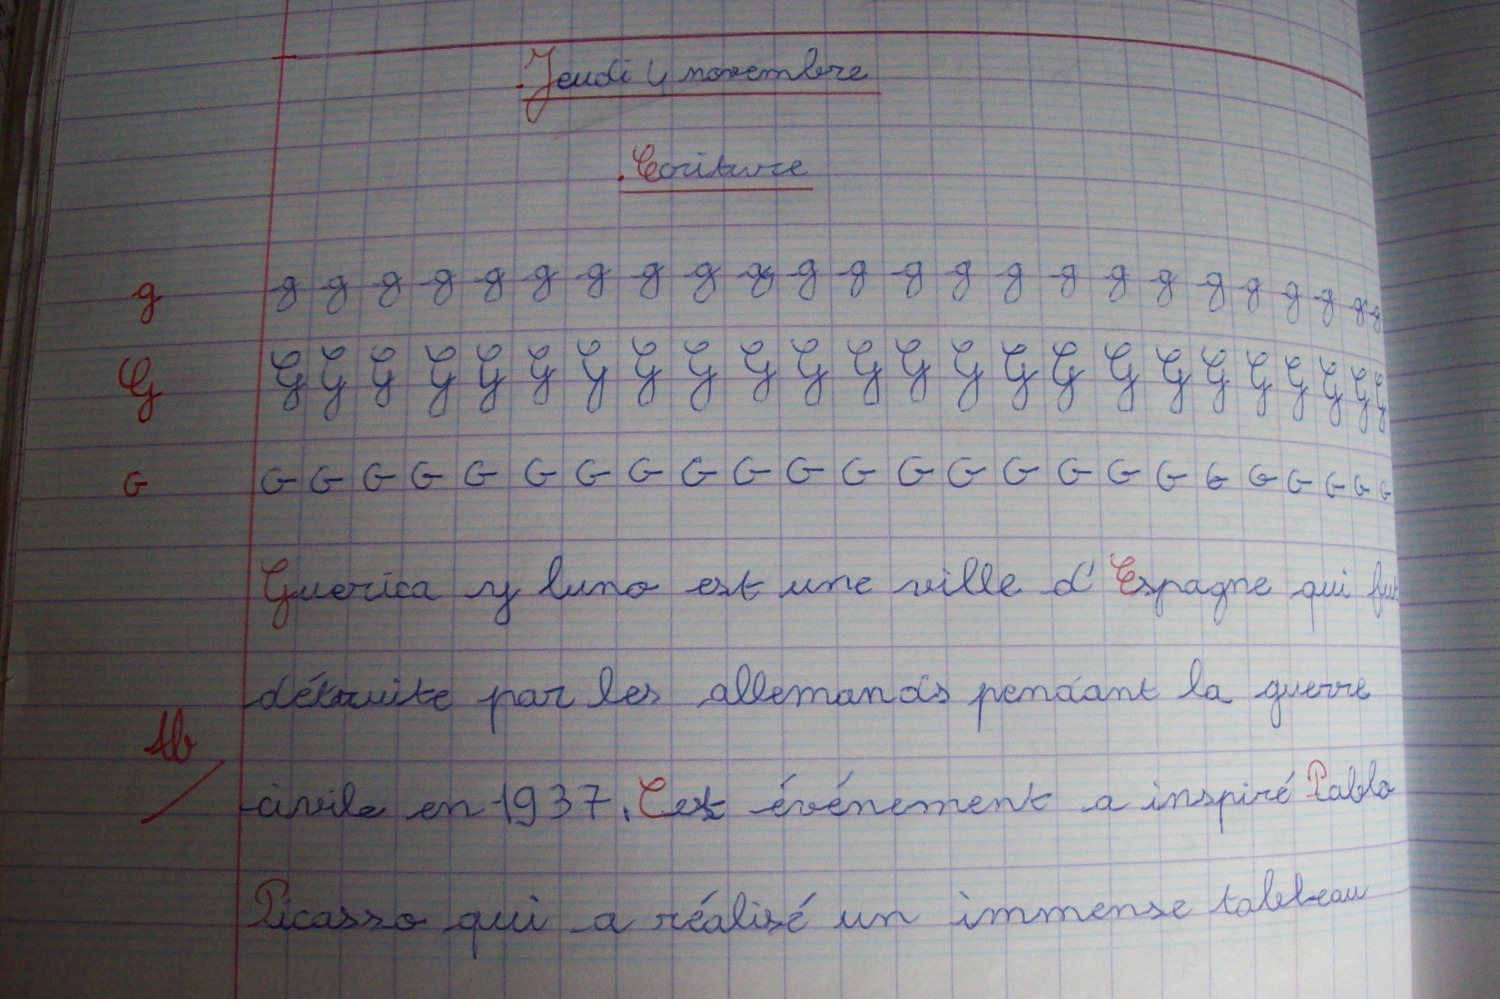 Jeudi 4 novembre
Ecriture
g g g g g g g g g g g g g g g g g g g g g g g g g
G G G G G G G G G G G G G G G G G G G G G G G G G
G G G G G G G G G G G G G G G G G G G G G G G G G
Guerica y luno est une ville d'Espagne qui fut
détruite par les allemands pendant la guerre
civile en 1937. Cet événement a inspiré Pablo
Picasso qui a réalisé un immense tableau
tb